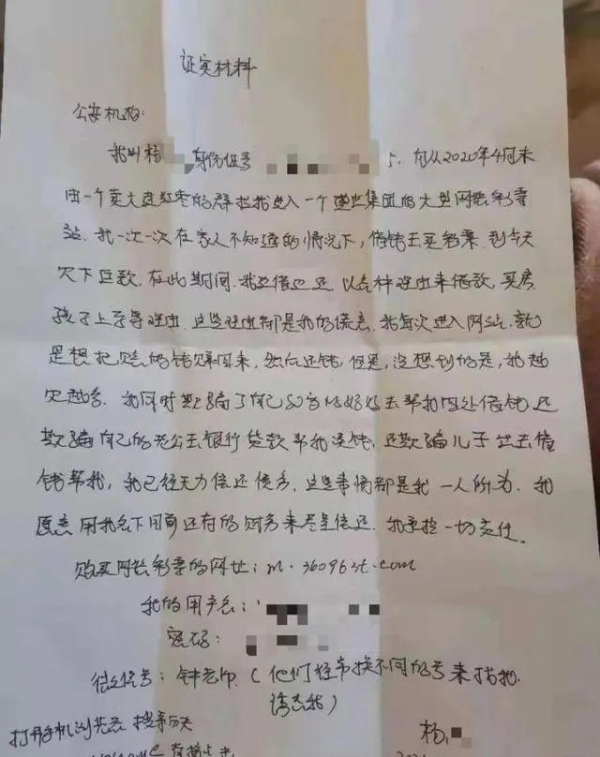 证实材料
公安机构:
我叫杨 身份证号 5. 在从2020年4月末
由一个卖大连红枣的群拉我进入一个 集团的大型网络彩票
站. 我一次一次在家人不知道的情况下, 借钱去买彩票. 到今天
欠下巨款. 在此期间. 我边借边还. 以各种理由来借款, 买房,
孩子上学等理由. 这些理由都是我的谎言. 我每次进入网站. 就
是想把输的钱赚回来, 然后还钱, 但是, 没想到的是, 我越
欠越多. 我同时欺骗了自己80岁的妈妈去帮我四处借钱, 还
欺骗自己的老公去银行贷款帮我还钱, 还欺骗儿子出去借
钱帮我, 我已经无力偿还债务. 这些事情都是我一人所为. 我
愿意用我名下目前还有的财务来尽量偿还. 我承担一切责任.
购买网络彩票的网址: m.36096st.com
我的用户名:
密码:
微信号: 钟老师. (他们经常换不同的号来找我.
请杰我)
打开手机浏览器 搜索历史 杨